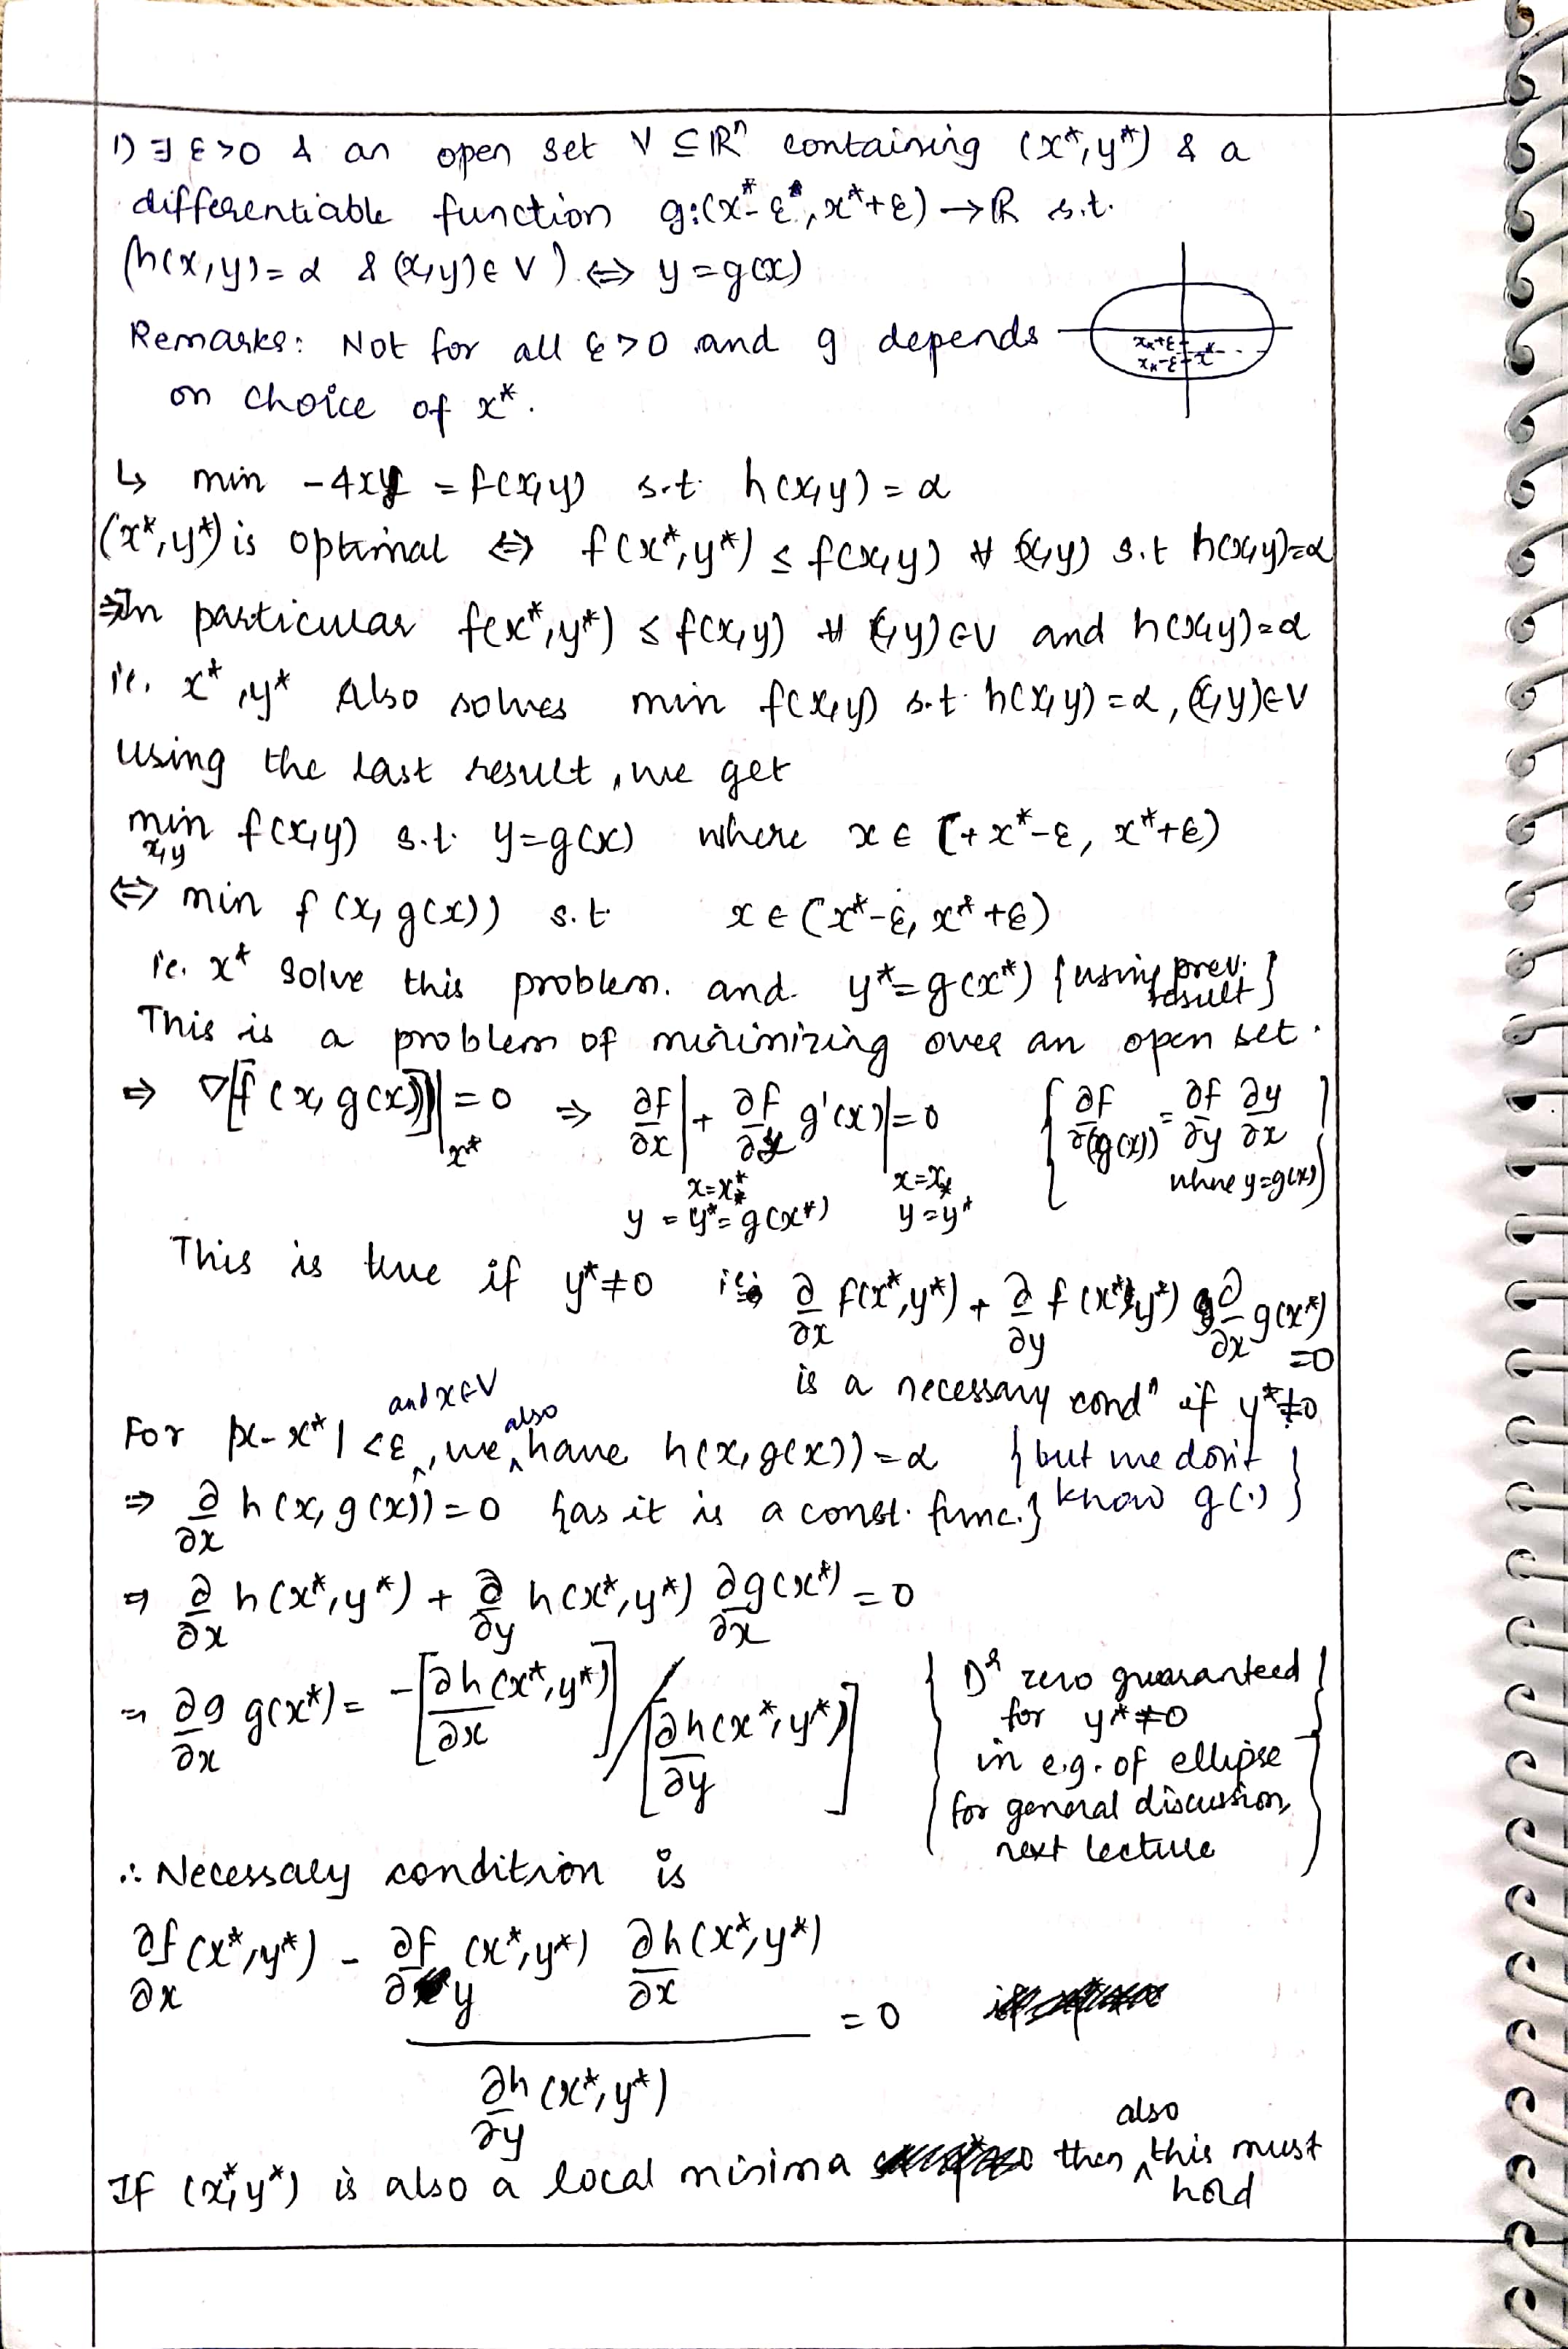 1) ∃ ε>0 & an open set V ⊆ ℝⁿ containing (x*, y*) & a
differentiable function g:(x*-ε, x*+ε) → ℝ s.t.
(h(x,y)=α & (x,y)∈V) ⇔ y=g(x)
Remarks: Not for all ε>0 and g depends
on choice of x*.
x*+ε
x*-ε x*
↳ min -4xy = f(x,y) s.t. h(x,y)=α
(x*,y*) is optimal ⇔ f(x*,y*) ≤ f(x,y) ∀ (x,y) s.t h(x,y)=α
⇒ In particular f(x*,y*) ≤ f(x,y) ∀ (x,y)∈V and h(x,y)=α
ie. x*,y* Also solves min f(x,y) s.t. h(x,y)=α, (x,y)∈V
using the last result, we get
min f(x,y) s.t. y=g(x) where x ∈ (+x*-ε, x*+ε)
x,y
⇔ min f(x, g(x)) s.t. x ∈ (x*-ε, x*+ε)
ie. x* solve this problem. and y*=g(x*) {using prev. result}
This is a problem of minimizing over an open set.
⇒ ∇[f(x, g(x))]|x* = 0 ⇒ ∂f/∂x| + ∂f/∂y g'(x)| = 0 {∂f/∂(g(x)) = ∂f/∂y ∂y/∂x
x=x* x=x* where y=g(x)}
y=y*=g(x*) y=y*
This is true if y*≠0 ie. ∂/∂x f(x*,y*) + ∂/∂y f(x*,y*) ∂/∂x g(x*)
=0
is a necessary condⁿ if y*≠0
For |x-x*|<ε and x∈V, we also have h(x,g(x))=α {but we don't
⇒ ∂/∂x h(x, g(x))=0 {as it is a const. func.} know g(.)}
⇒ ∂/∂x h(x*,y*) + ∂/∂y h(x*,y*) ∂g(x*)/∂x = 0
⇒ ∂g/∂x g(x*) = -[∂h(x*,y*)/∂x] / [∂h(x*,y*)/∂y]
{Dʳ zero guaranteed
for y*≠0
in e.g. of ellipse
for general discussion,
next lecture}
∴ Necessary condition is
∂f/∂x (x*,y*) - ∂f/∂y (x*,y*) ∂h(x*,y*)/∂x
= 0
∂h/∂y (x*,y*)
If (x*,y*) is also a local minima then also this must
hold